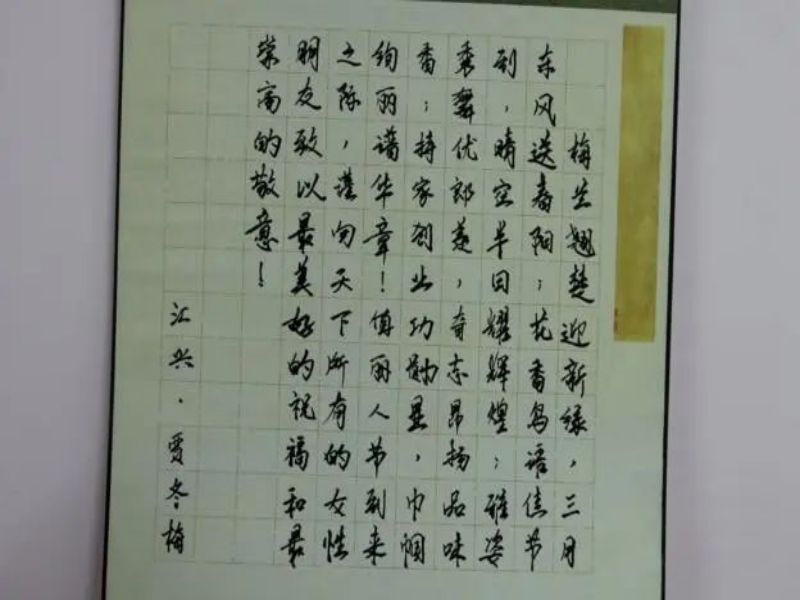 梅生翘楚迎新缘，三月
东风送春阳；花香鸟语佳节
到，晴空羊回耀辉煌；雅姿
舞优，奇志昂扬品味
香；持家创业功勋显，巾帼
绚丽谱华章！值丽人节到来
之际，谨向天下所有的女性
朋友致以最美好的祝福和最
崇高的敬意！
汇兴·贾冬梅